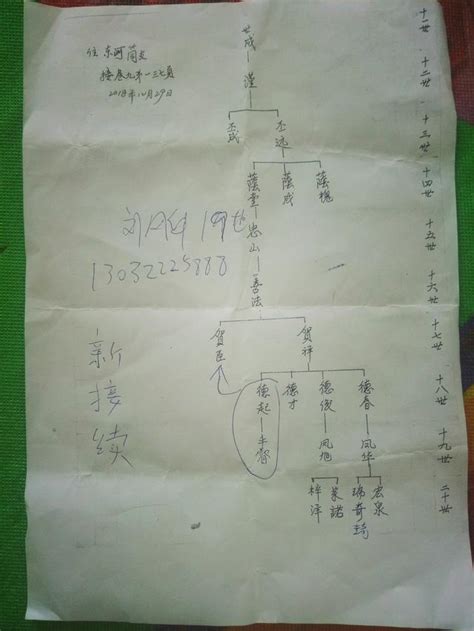 十一世 十二世 十三世 十四世 十五世 十六世 十七世 十八世 十九世 二十世
住东河
接卷九第一三七页
2018年10月29日
世成—谨
丕成 丕远
荫堂 荫成 荫槐
忠山
善法
贺臣 贺祥
德起 德才 德俊 德春
凤旭 凤华
梓洋 呆诺 瑞奇 宏泉
刘 19世
13032225888
新接续